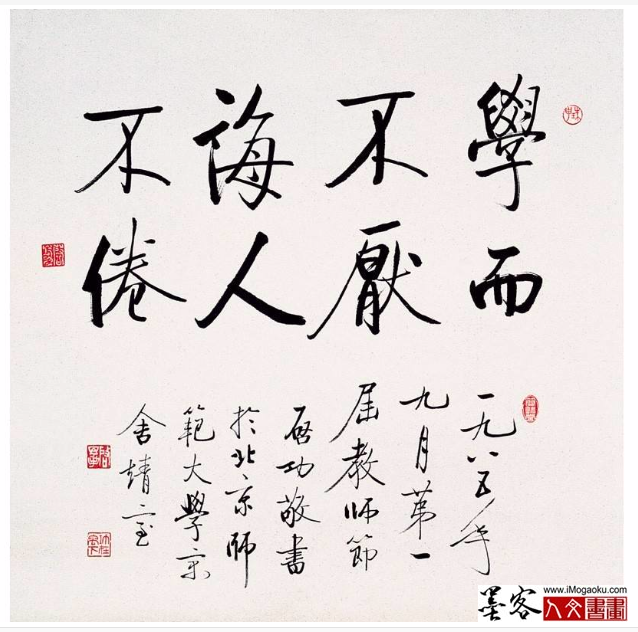 學而
不厭
誨人
不倦
一九八五年
九月第一
届教師節
啟功敬書
於北京師
範大學
舍
www.iMogaoku.com
墨客
人文書畫